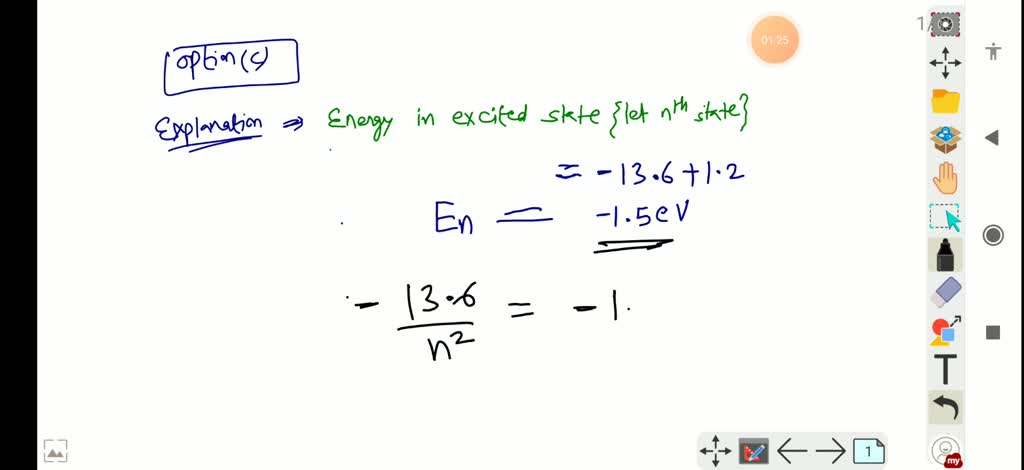 option(c)
Explanation ⇒ Energy in excited state {let nth state}
= -13.6+1.2
En = -1.5eV
- 13.6/n² = -1.
01:25
1/
T
1
my